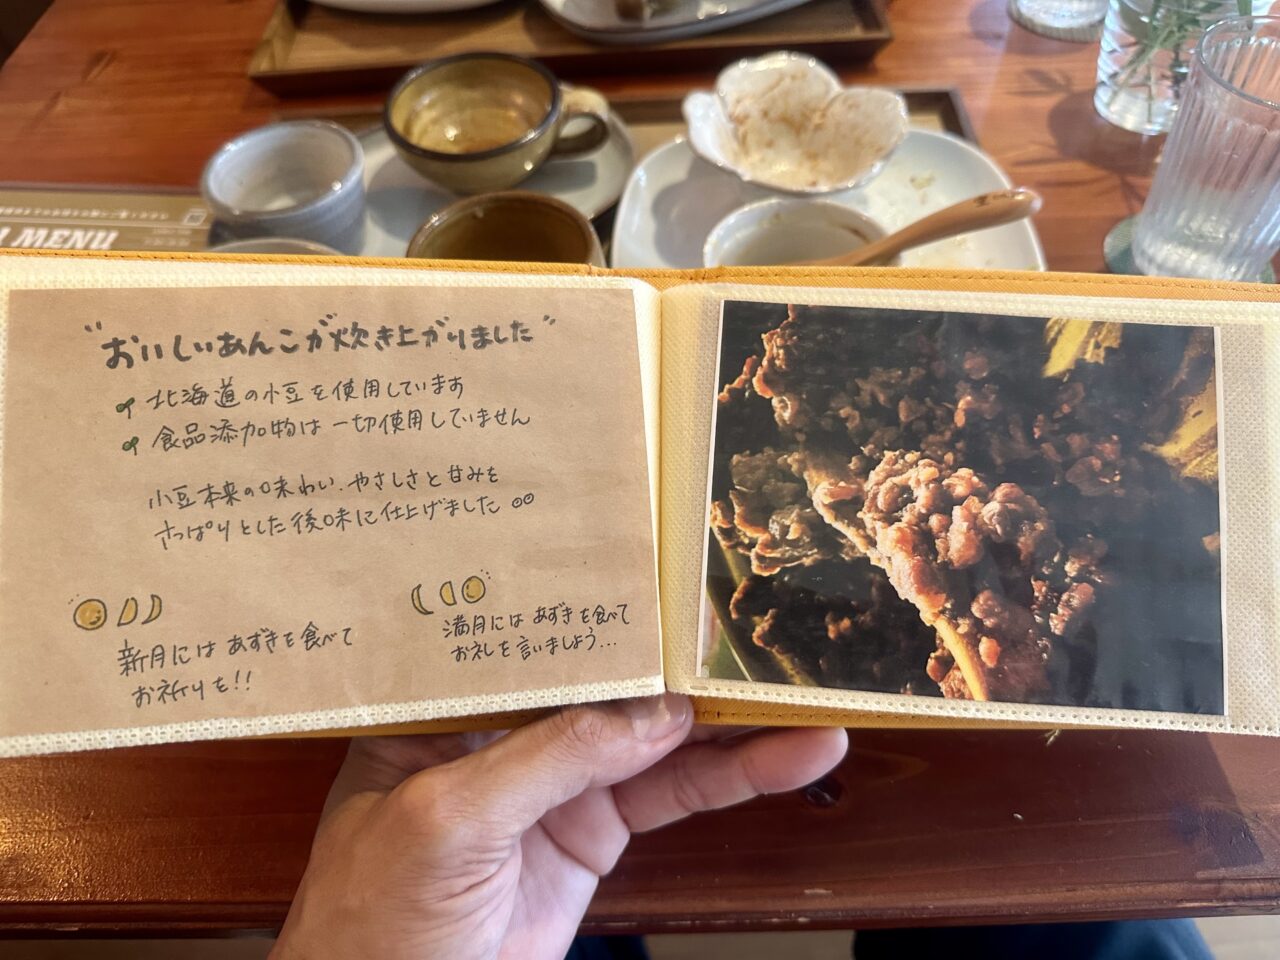 MENU
"おいしいあんこが炊き上がりました"
北海道の小豆を使用しています
食品添加物は一切使用していません
小豆本来の味わい、やさしさと甘みを
さっぱりとした後味に仕上げました
新月にはあずきを食べて
お祈りを!!
満月にはあずきを食べて
お礼を言いましょう...